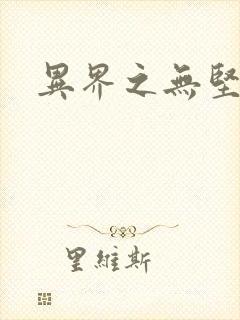 異界之無堅
里維斯